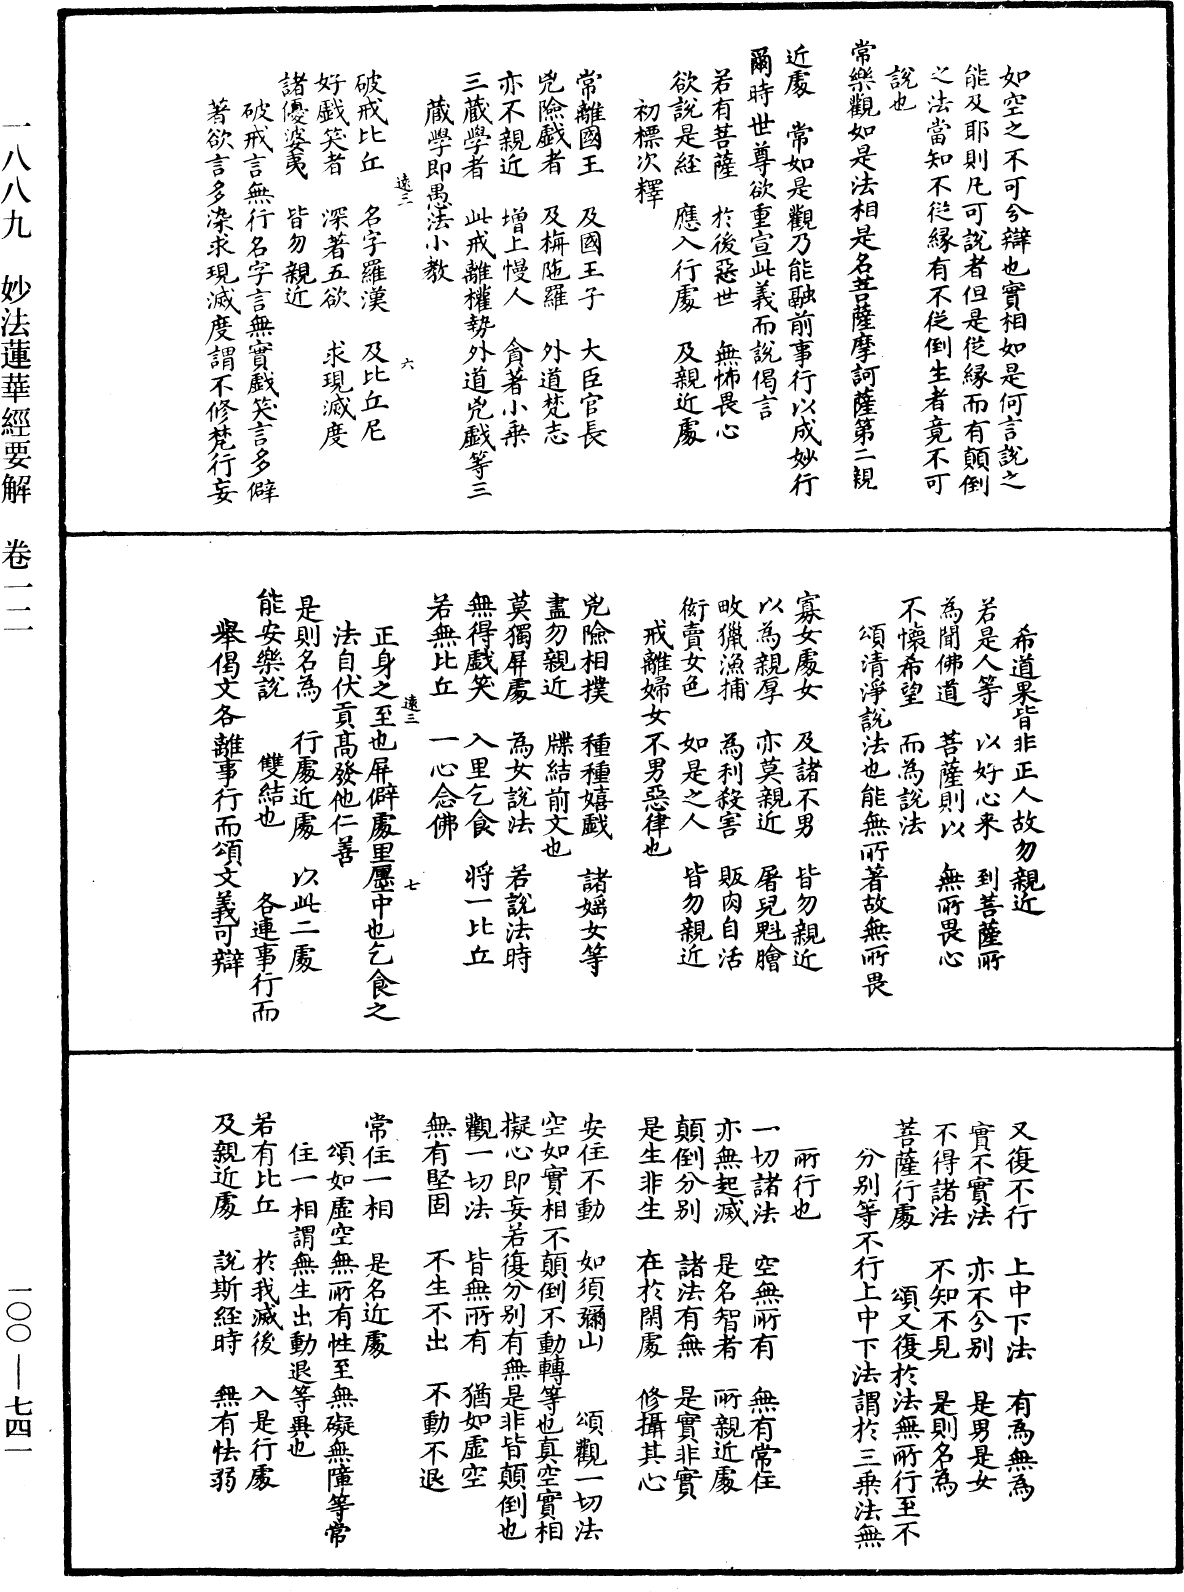 一八八九　妙法蓮華經要解　卷一二
一〇〇—七四一
如空之不可分辯也實相如是何言說之
能及耶則凡可說者但是從緣而有顛倒
之法當知不從緣有不從倒生者竟不可
說也
常樂觀如是法相是名菩薩摩訶薩第二親
近處　常如是觀乃能融前事行以成妙行
爾時世尊欲重宣此義而說偈言
若有菩薩　於後惡世　無怖畏心
欲說是經　應入行處　及親近處
初標次釋
常離國王　及國王子　大臣官長
兇險戲者　及栴陁羅　外道梵志
亦不親近　增上慢人　貪著小乘
三藏學者　此戒離權勢外道兇戲等三
藏學即愚法小教
遠三　六
破戒比丘　名字羅漢　及比丘尼
好戲笑者　深著五欲　求現滅度
諸優婆夷　皆勿親近
破戒言無行名字言無實戲笑言多僻
著欲言多染求現滅度謂不修梵行妄
希道果皆非正人故勿親近
若是人等　以好心来　到菩薩所
為聞佛道　菩薩則以　無所畏心
不懷希望　而為說法
頌清淨說法也能無所著故無所畏
寡女處女　及諸不男　皆勿親近
以為親厚　亦莫親近　屠兒魁膾
畋獵漁捕　為利殺害　販肉自活
衒賣女色　如是之人　皆勿親近
戒離婦女不男惡律也
兇險相撲　種種嬉戲　諸婬女等
盡勿親近　牒結前文也
莫獨屏處　為女說法　若說法時
無得戲笑　入里乞食　將一比丘
若無比丘　一心念佛
遠三　七
正身之至也屏僻處里㕓中也乞食之
法自伏貢高發他仁善
是則名為　行處近處　以此二處
能安樂說　雙結也　各連事行而
舉偈文各離事行而頌文義可辯
又復不行　上中下法　有為無為
實不實法　亦不分別　是男是女
不得諸法　不知不見　是則名為
菩薩行處　頌又復於法無所行至不
分別等不行上中下法謂於三乘法無
所行也
一切諸法　空無所有　無有常住
亦無起滅　是名智者　所親近處
顛倒分別　諸法有無　是實非實
是生非生　在於閑處　修攝其心
安住不動　如須彌山　頌觀一切法
空如實相不顛倒不動轉等也真空實相
擬心即妄若復分別有無是非皆顛倒也
觀一切法　皆無所有　猶如虛空
無有堅固　不生不出　不動不退
常住一相　是名近處
頌如虛空無所有性至無礙無障等常
住一相謂無生出動退等異也
若有比丘　於我滅後　入是行處
及親近處　說斯經時　無有怯弱